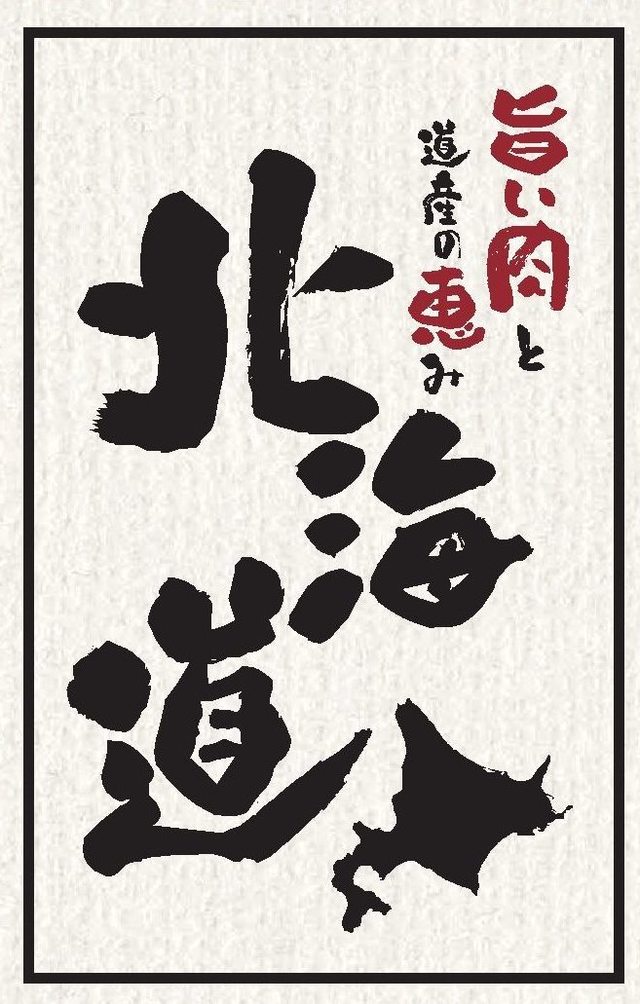 旨い肉と
道産の恵み
北海道